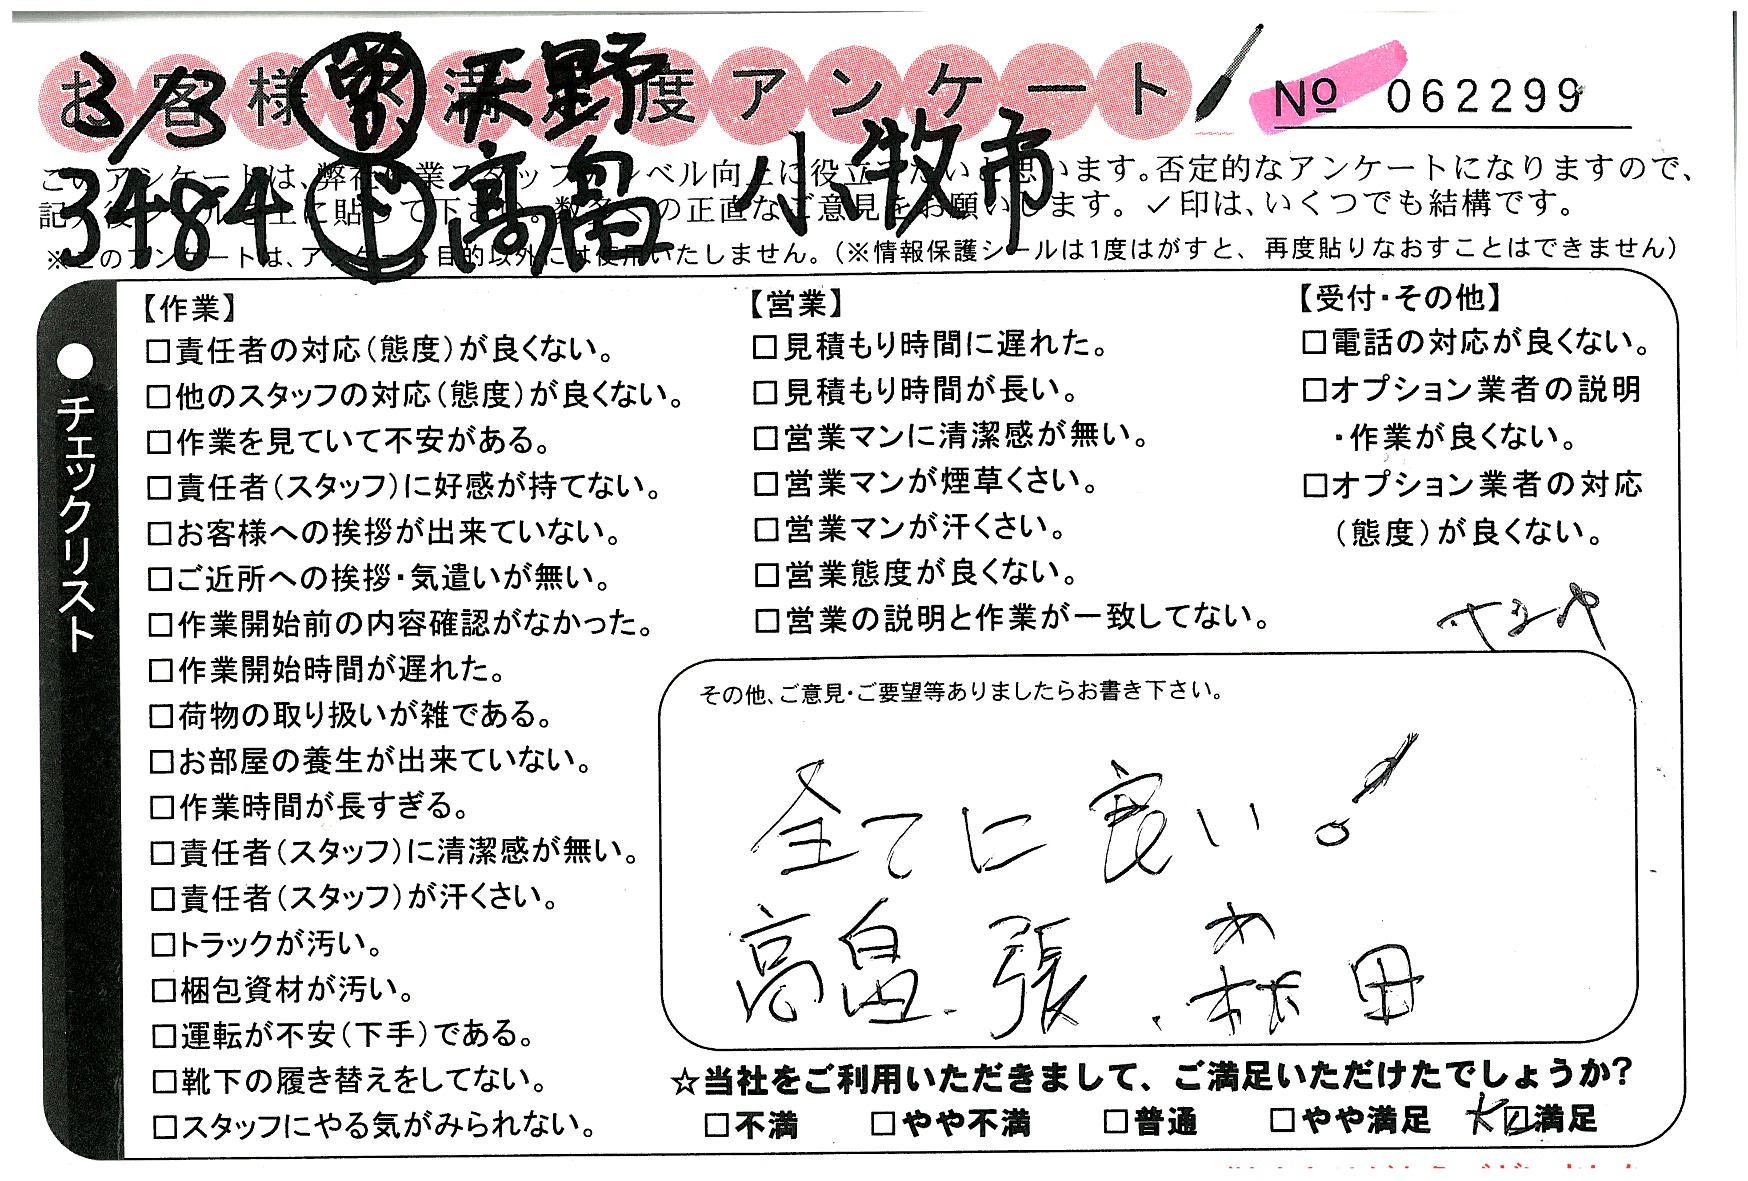 お客様不満足度アンケート
No 062299
3/3 営 天野
3484 作 高畠 小牧市
このアンケートは、弊社作業スタッフのレベル向上に役立てたいと思います。否定的なアンケートになりますので、
記入後シールを上に貼って下さい。数多くの正直なご意見をお願いします。✓印は、いくつでも結構です。
※このアンケートは、アンケート目的以外には使用いたしません。(※情報保護シールは1度はがすと、再度貼りなおすことはできません)
●チェックリスト
【作業】
□責任者の対応(態度)が良くない。
□他のスタッフの対応(態度)が良くない。
□作業を見ていて不安がある。
□責任者(スタッフ)に好感が持てない。
□お客様への挨拶が出来ていない。
□ご近所への挨拶・気遣いが無い。
□作業開始前の内容確認がなかった。
□作業開始時間が遅れた。
□荷物の取り扱いが雑である。
□お部屋の養生が出来ていない。
□作業時間が長すぎる。
□責任者(スタッフ)に清潔感が無い。
□責任者(スタッフ)が汗くさい。
□トラックが汚い。
□梱包資材が汚い。
□運転が不安(下手)である。
□靴下の履き替えをしてない。
□スタッフにやる気がみられない。
【営業】
□見積もり時間に遅れた。
□見積もり時間が長い。
□営業マンに清潔感が無い。
□営業マンが煙草くさい。
□営業マンが汗くさい。
□営業態度が良くない。
□営業の説明と作業が一致してない。
【受付・その他】
□電話の対応が良くない。
□オプション業者の説明
・作業が良くない。
□オプション業者の対応
(態度)が良くない。
その他、ご意見・ご要望等ありましたらお書き下さい。
全てに良い!
高畠.張.森田
☆当社をご利用いただきまして、ご満足いただけたでしょうか?
□不満 □やや不満 □普通 □やや満足 大☑満足